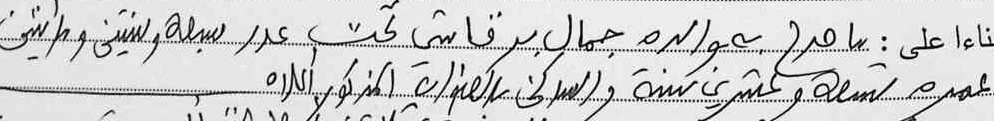 بناءا على : ما صرح به والده جمال برقاشي تحت عدد سبعة وستين ومائتين
عمره تسعة وعشرين سنة والساكن بالعنوان المذكور أعلاه